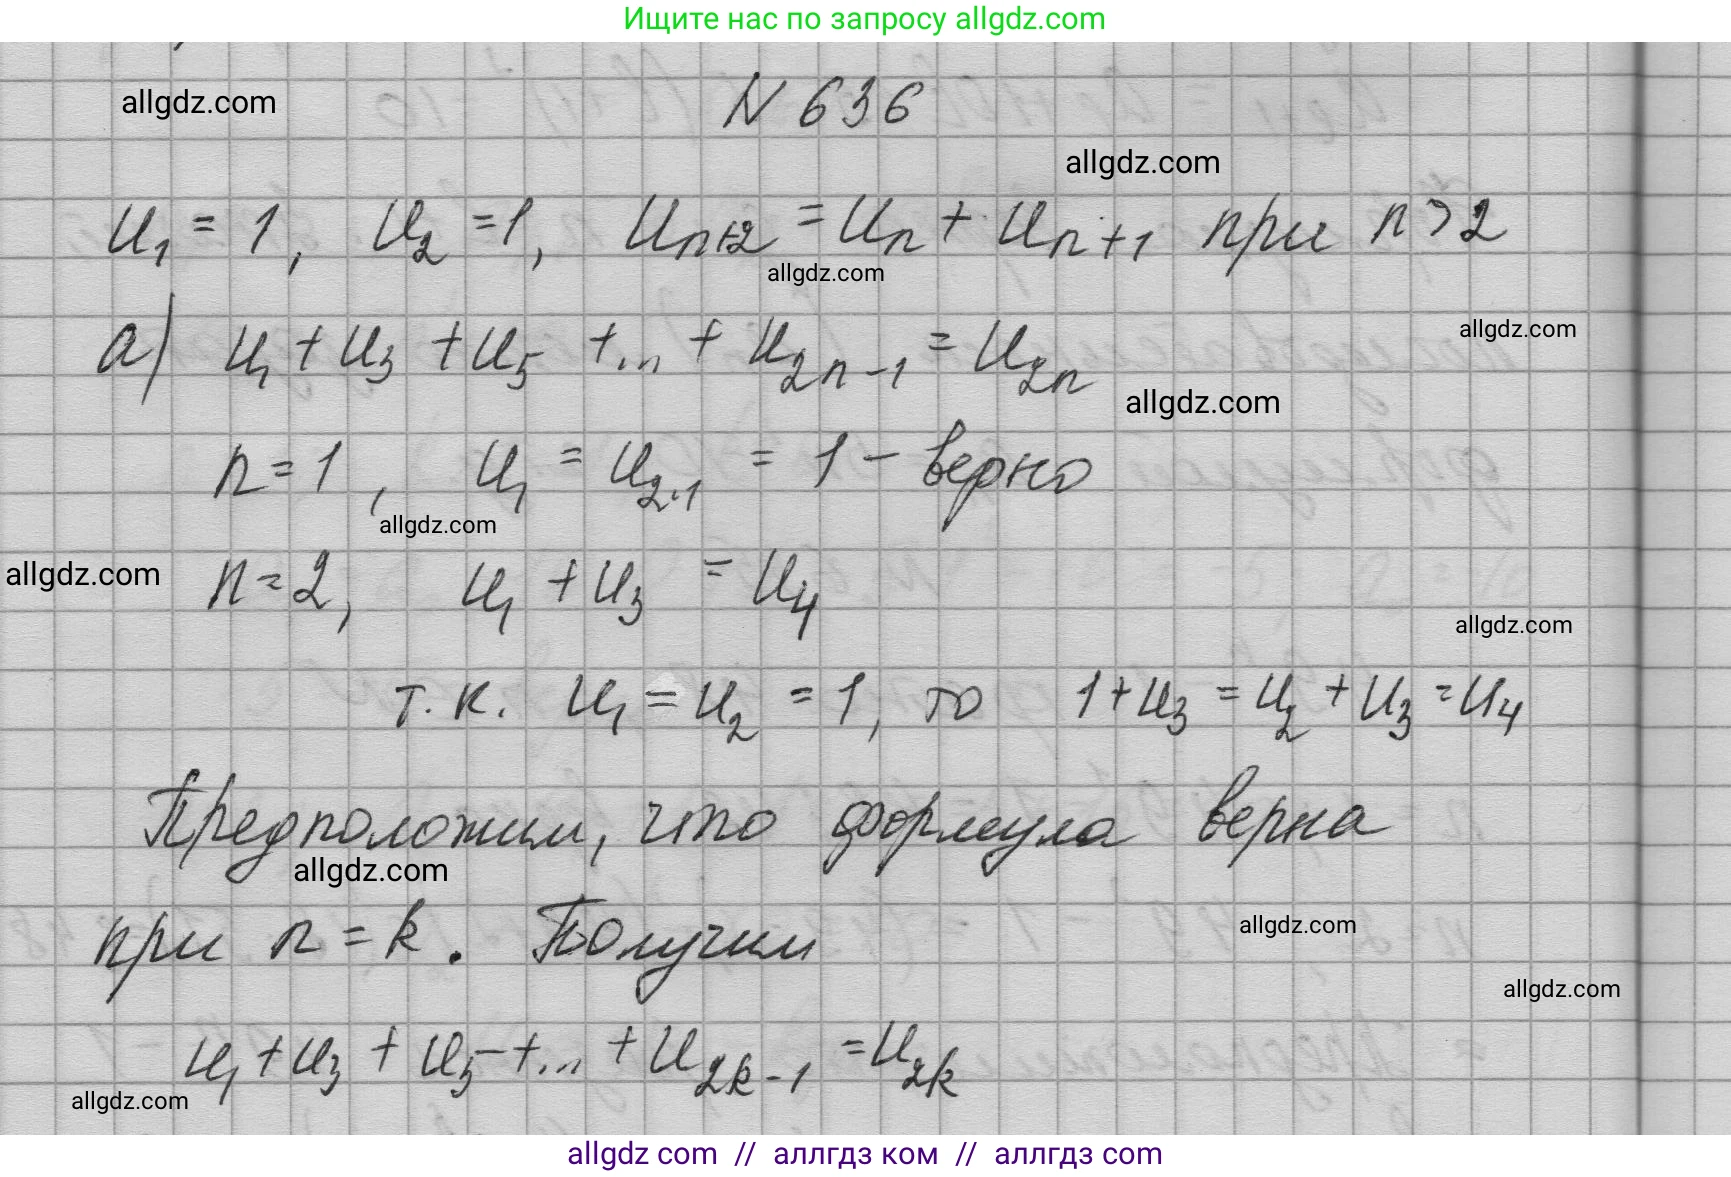 Ищите нас по запросу allgdz.com
allgdz.com
N 636
allgdz.com
u₁ = 1, u₂ = 1, uₙ₊₂ = uₙ + uₙ₊₁ при n > 2
allgdz.com
allgdz.com
а) u₁ + u₃ + u₅ + ... + u₂ₙ₋₁ = u₂ₙ
allgdz.com
n = 1, u₁ = u₂.₁ = 1 – верно
allgdz.com
allgdz.com
n = 2, u₁ + u₃ = u₄
allgdz.com
т.к. u₁ = u₂ = 1, то 1 + u₃ = u₂ + u₃ = u₄
Предположим, что формула верна
allgdz.com
при n = k. Получим
allgdz.com
allgdz.com
u₁ + u₃ + u₅ + ... + u₂ₖ₋₁ = u₂ₖ
allgdz.com
allgdz com // аллгдз ком // аллгдз com